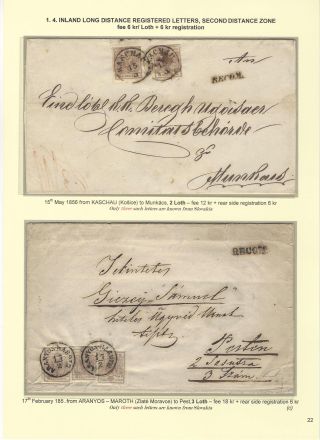 1. 4. INLAND LONG DISTANCE REGISTERED LETTERS, SECOND DISTANCE ZONE
fee 6 kr/ Loth + 6 kr registration
An
RECOM.
Comitats Behörde
zu
Munkacs
15th May 1856 from KASCHAU (Košice) to Munkács, 2 Loth – fee 12 kr + rear side registration 6 kr
Only three such letters are known from Slovakia
RECOM.
Tekintetes
Giczey "Sámuel"
hites Ügyvéd Urnak
Pesten
3 Szám.
17th February 185. from ARANYOS – MAROTH (Zlaté Moravce) to Pest, 3 Loth – fee 18 kr + rear side registration 6 kr
Only three such letters are known from Slovakia
22